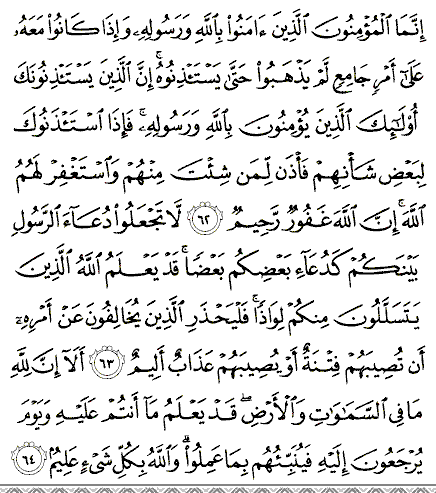 إِنَّمَا الْمُؤْمِنُونَ الَّذِينَ ءَامَنُوا۟ بِاللَّهِ وَرَسُولِهِۦ وَإِذَا كَانُوا۟ مَعَهُۥ
عَلَىٰٓ أَمْرٍ جَامِعٍ لَّمْ يَذْهَبُوا۟ حَتَّىٰ يَسْتَـْٔذِنُوهُ ۚ إِنَّ الَّذِينَ يَسْتَـْٔذِنُونَكَ
أُو۟لَٰٓئِكَ الَّذِينَ يُؤْمِنُونَ بِاللَّهِ وَرَسُولِهِۦ ۚ فَإِذَا اسْتَـْٔذَنُوكَ
لِبَعْضِ شَأْنِهِمْ فَأْذَن لِّمَن شِئْتَ مِنْهُمْ وَاسْتَغْفِرْ لَهُمُ
اللَّهَ ۚ إِنَّ اللَّهَ غَفُورٌ رَّحِيمٌ ٦٢ لَّا تَجْعَلُوا۟ دُعَآءَ الرَّسُولِ
بَيْنَكُمْ كَدُعَآءِ بَعْضِكُم بَعْضًا ۚ قَدْ يَعْلَمُ اللَّهُ الَّذِينَ
يَتَسَلَّلُونَ مِنكُمْ لِوَاذًا ۚ فَلْيَحْذَرِ الَّذِينَ يُخَالِفُونَ عَنْ أَمْرِهِۦٓ
أَن تُصِيبَهُمْ فِتْنَةٌ أَوْ يُصِيبَهُمْ عَذَابٌ أَلِيمٌ ٦٣ أَلَآ إِنَّ لِلَّهِ
مَا فِي السَّمَٰوَٰتِ وَالْأَرْضِ ۖ قَدْ يَعْلَمُ مَآ أَنتُمْ عَلَيْهِ وَيَوْمَ
يُرْجَعُونَ إِلَيْهِ فَيُنَبِّئُهُم بِمَا عَمِلُوا۟ ۗ وَاللَّهُ بِكُلِّ شَيْءٍ عَلِيمٌۢ ٦٤